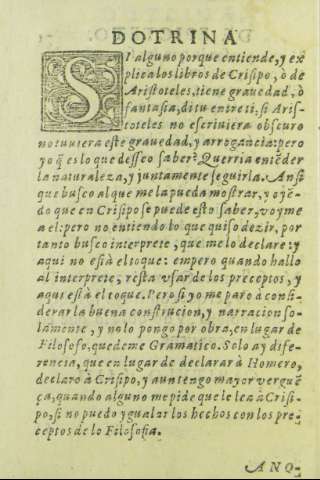 DOTRINA
SI alguno porque entiende, y ex
plica los libros de Crisipo, ò de
Aristoteles, tiene grauedad, ò
fantasia, di tu entre ti, si Aris-
toteles no escriuiera obscuro
no tuuiera este grauedad, y arrogancia: pero
yo q̃ es lo que desseo saber? Querria entẽder
la naturaleza, y juntamente seguirla. Ansi
que busco al que me la pueda mostrar, y oyẽ-
do que en Crisipo se puede esto saber, voyme
a el: pero no entiendo lo que quiso dezir, por
tanto busco interprete, que me lo declare: y
aqui no està el toque: empero quando hallo
al interprete, resta vsar de los preceptos, y
aqui està el toque. Pero si yo me paro à consi-
derar la buena construcion, y narracion so-
lamente, y no lo pongo por obra, en lugar de
Filosofo, quedeme Gramatico. Solo ay dife-
rencia, que en lugar de declarar à Homero,
declaro à Crisipo, y aun tengo mayor verguẽ
ça, quando alguno me pide que le lea à Crisi-
po, si no puedo ygualar los hechos con los pre-
ceptos de lo Filosofia.
ANO-